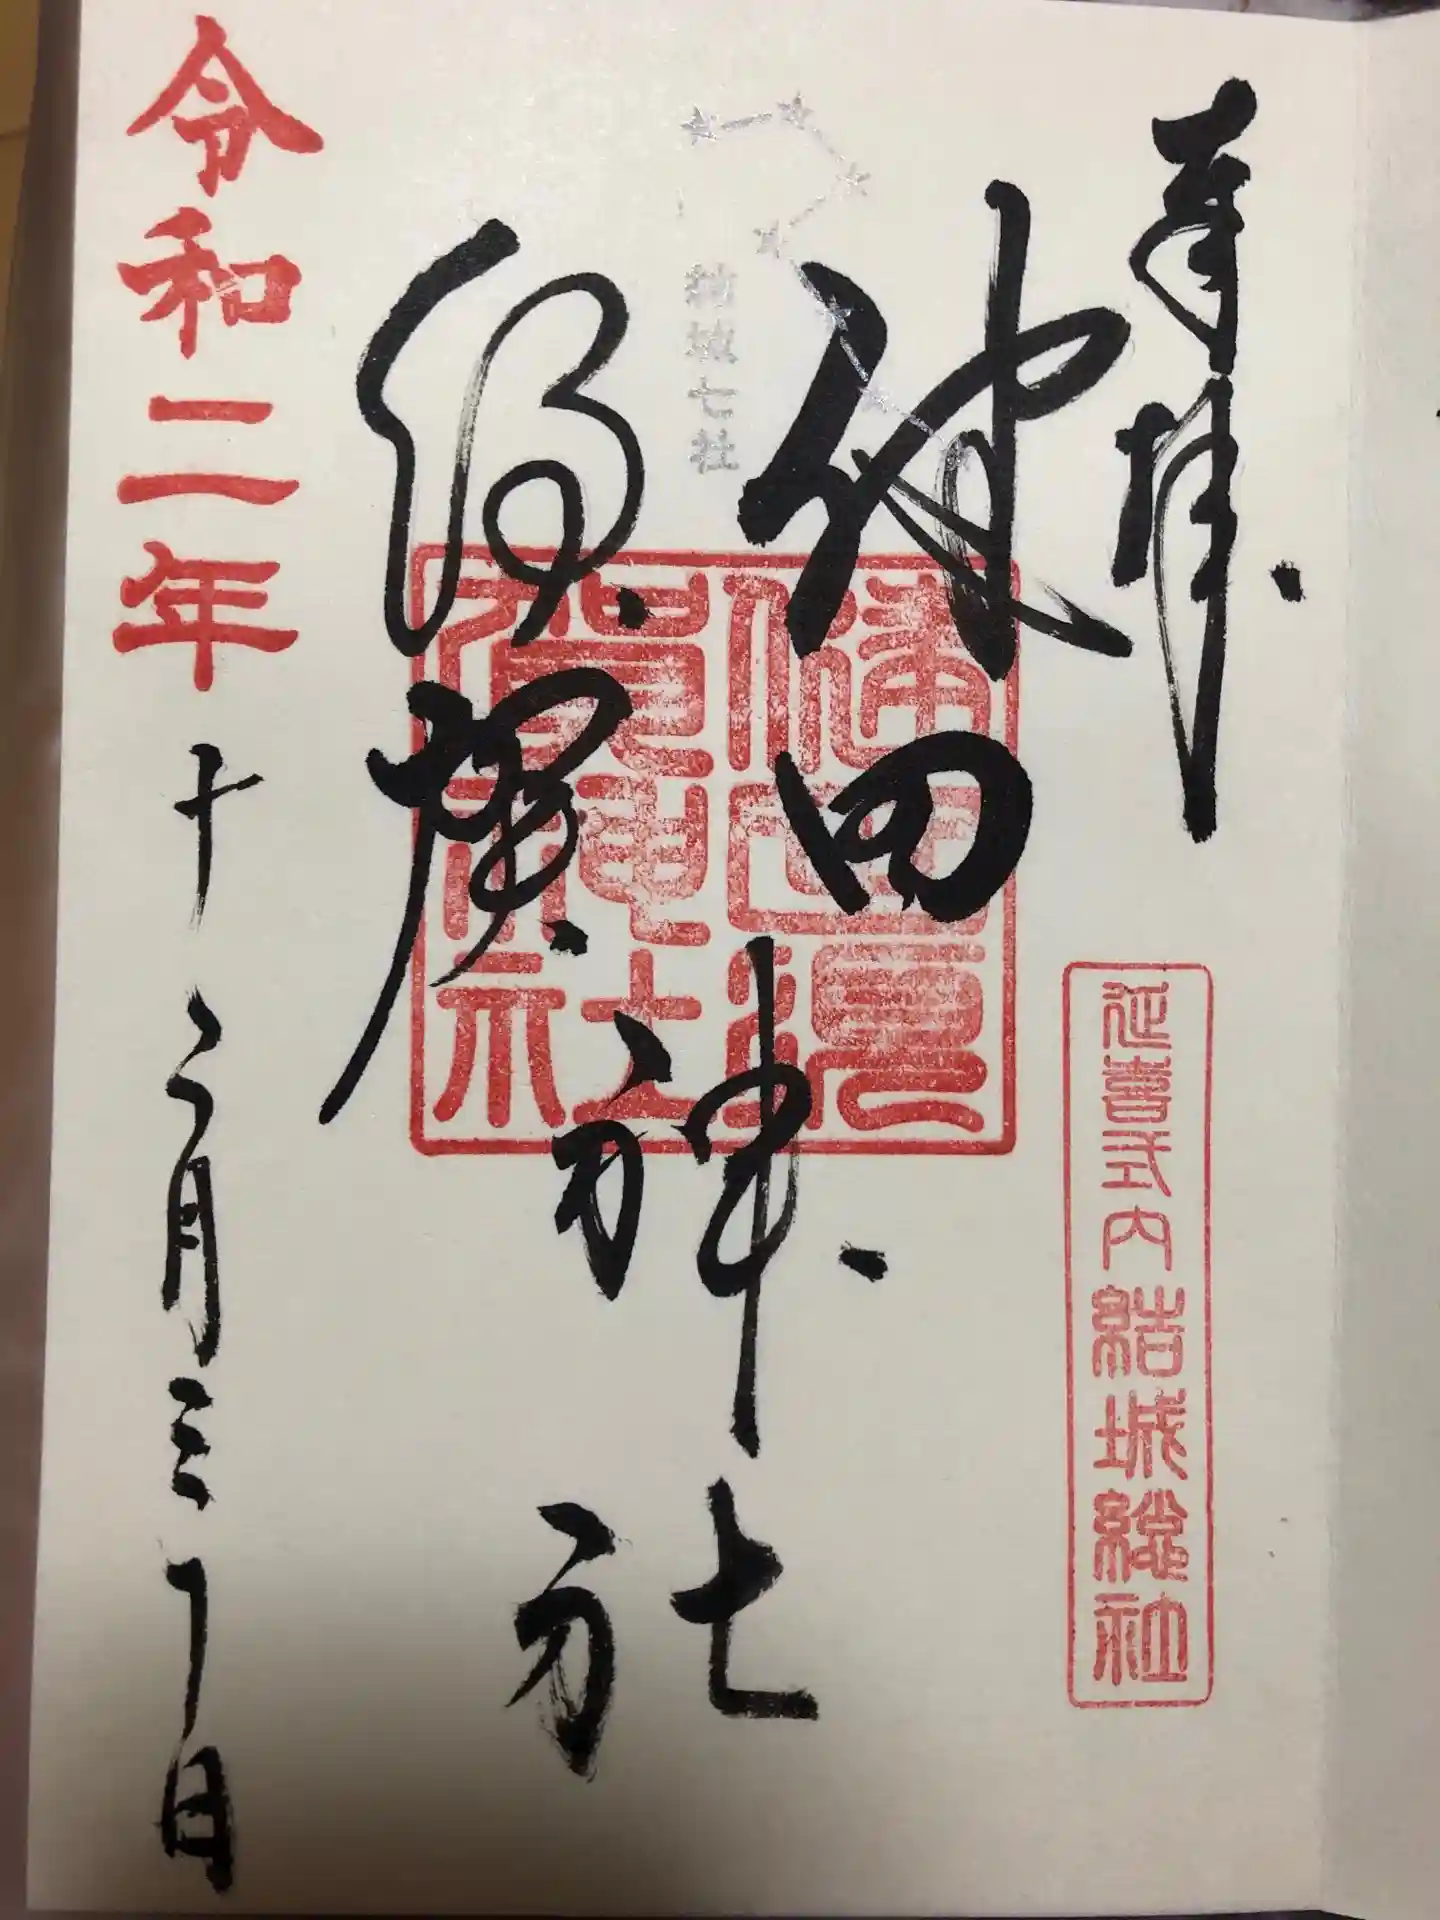 奉拝
延喜式内結城総社
健田
須賀
神社
結城七社
健田須
賀神社
令和二年十二月三日